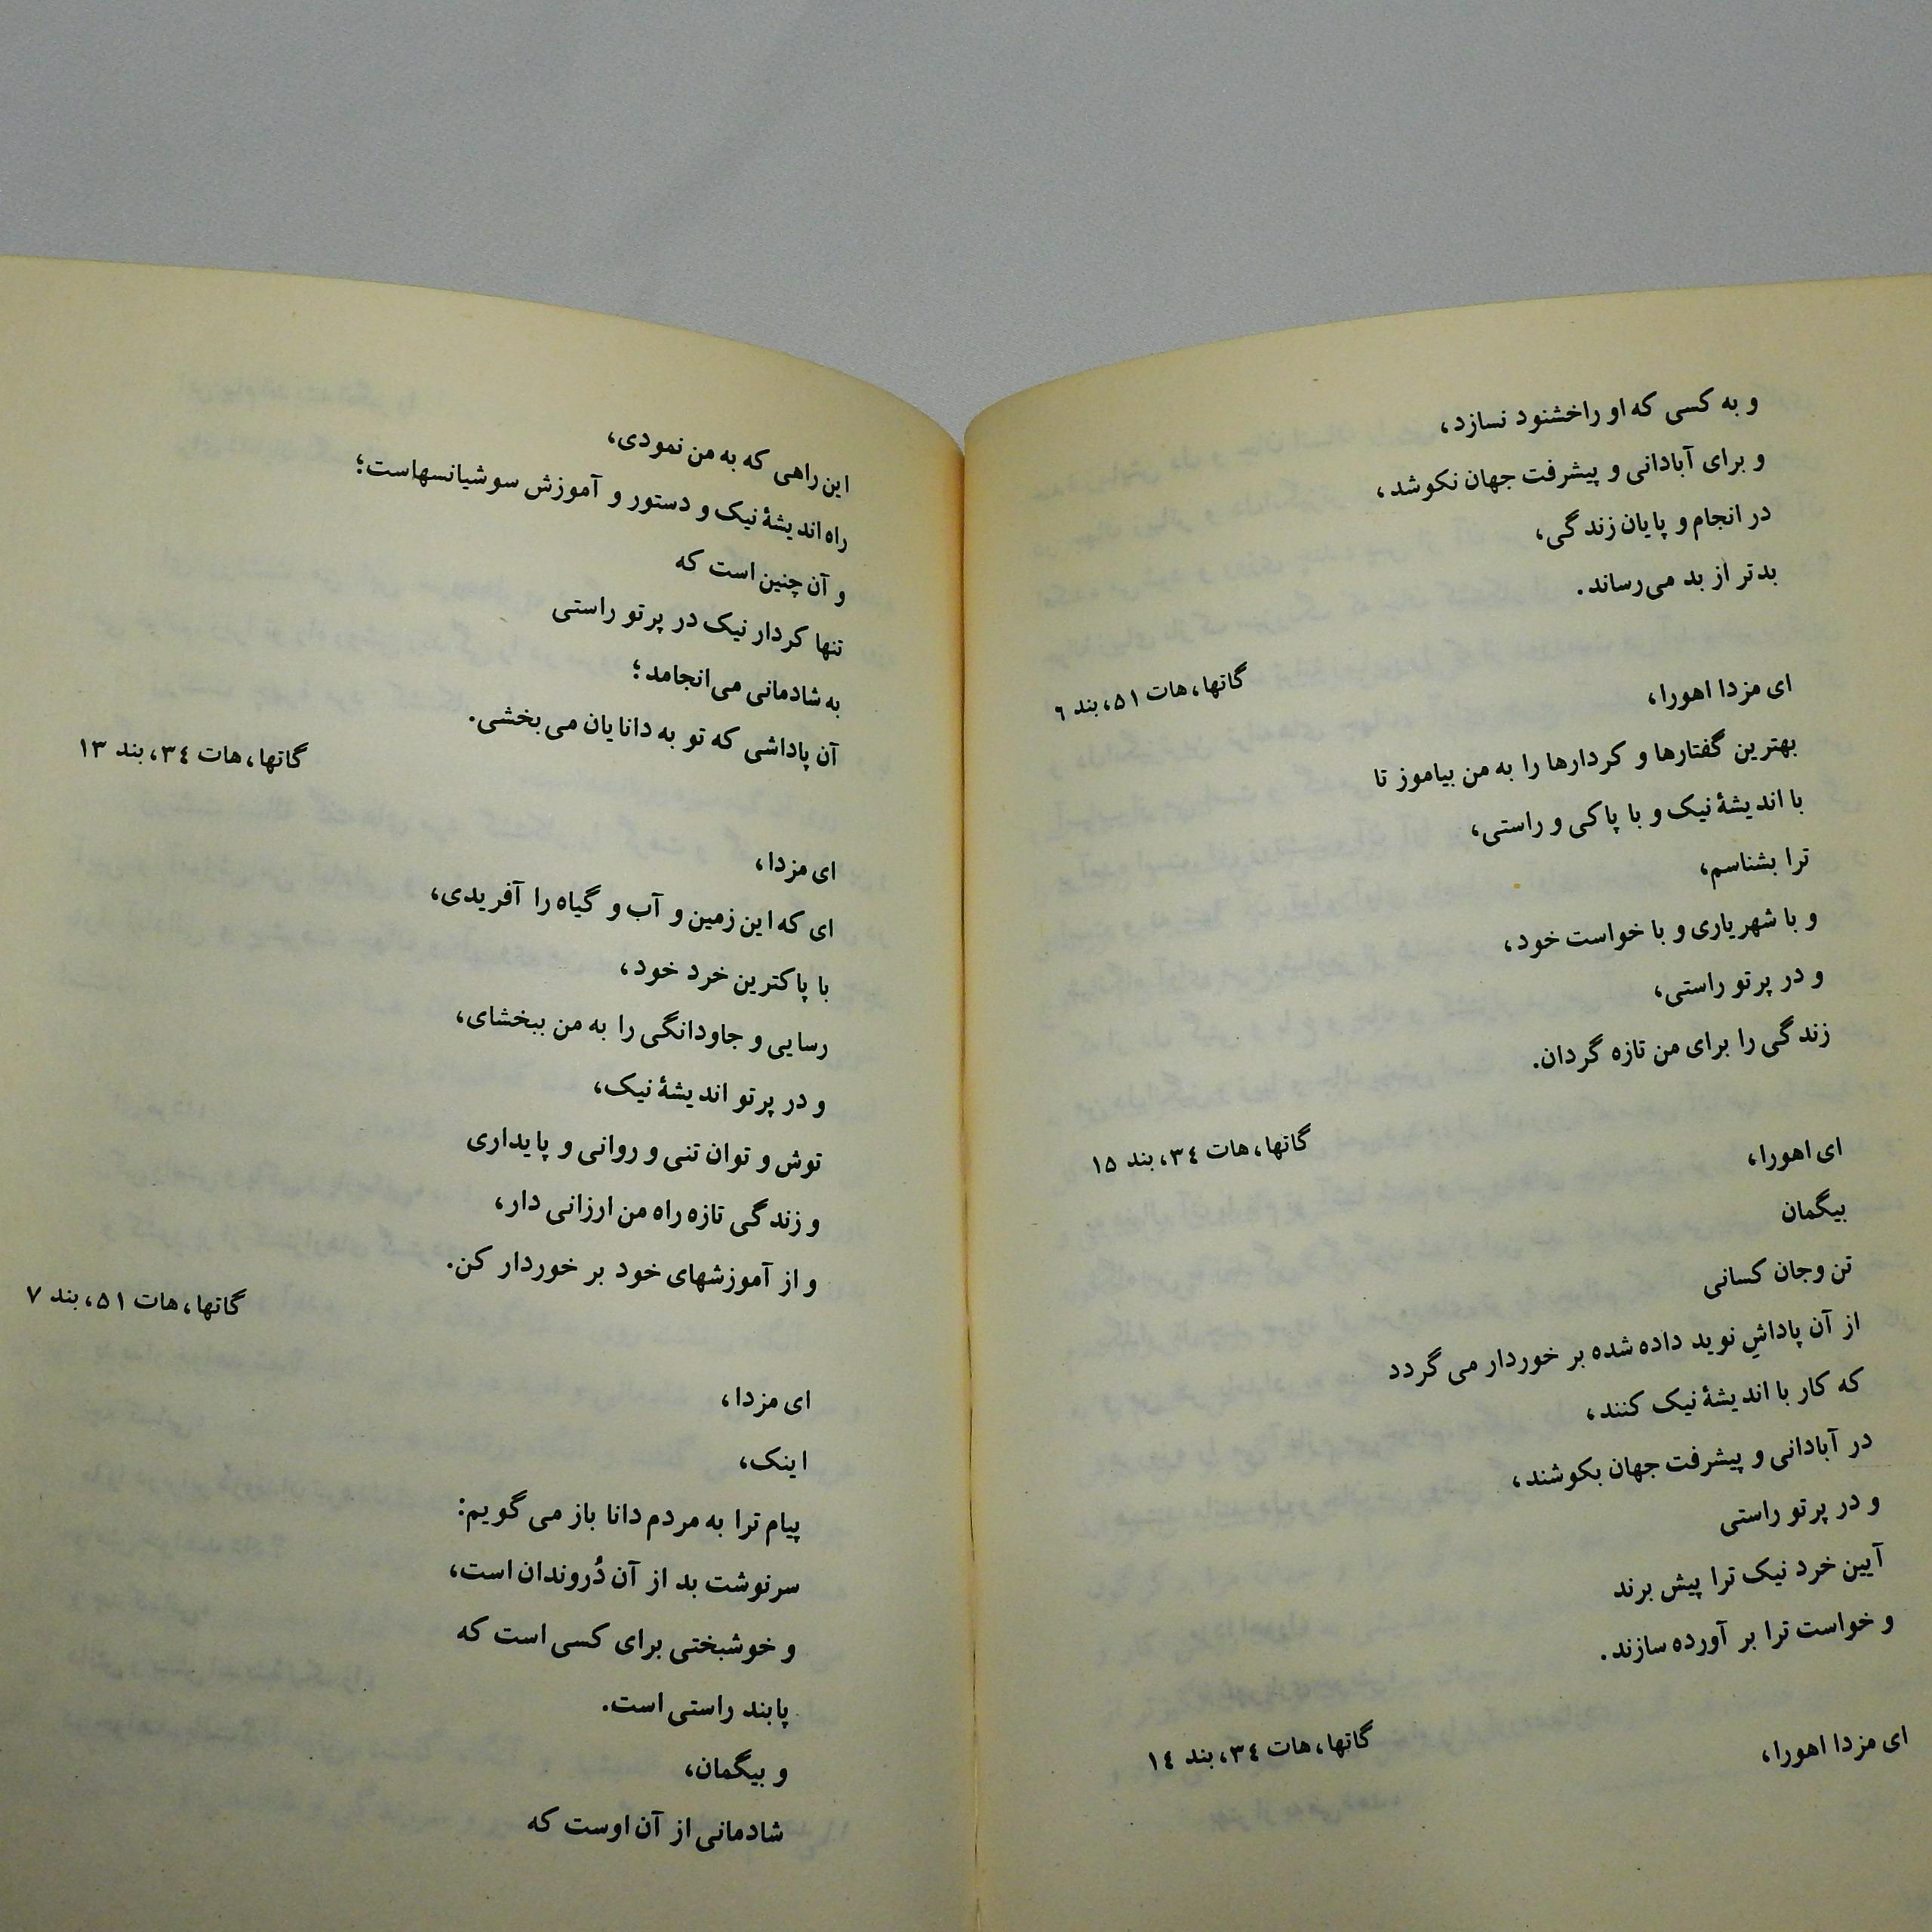 و به کسی که او را خشنود نسازد،
و برای آبادانی و پیشرفت جهان نکوشد،
در انجام و پایان زندگی،
بدتر از بد می‌رساند.
گاتها، هات ۵۱، بند ۶
ای مزدا اهورا،
بهترین گفتارها و کردارها را به من بیاموز تا
با اندیشهٔ نیک و با پاکی و راستی،
ترا بشناسم،
و با شهریاری و با خواست خود،
و در پرتو راستی،
زندگی را برای من تازه گردان.
گاتها، هات ۳۴، بند ۱۵
ای اهورا،
بیگمان
تن و جان کسانی
از آن پاداشِ نوید داده شده بر خوردار می گردد
که کار با اندیشهٔ نیک کنند،
در آبادانی و پیشرفت جهان بکوشند،
و در پرتو راستی
آیین خرد نیک ترا پیش برند
و خواست ترا بر آورده سازند.
گاتها، هات ۳۴، بند ۱۴
ای مزدا اهورا،
این راهی که به من نمودی،
راه اندیشهٔ نیک و دستور و آموزش سوشیانسهاست؛
و آن چنین است که
تنها کردار نیک در پرتو راستی
به شادمانی می‌انجامد؛
آن پاداشی که تو به دانایان می‌بخشی.
گاتها، هات ۳۴، بند ۱۳
ای مزدا،
ای که این زمین و آب و گیاه را آفریدی،
با پاکترین خرد خود،
رسایی و جاودانگی را به من ببخشای،
و در پرتو اندیشهٔ نیک،
توش و توان تنی و روانی و پایداری
و زندگی تازه راه من ارزانی دار،
و از آموزشهای خود بر خوردار کن.
گاتها، هات ۵۱، بند ۷
ای مزدا،
اینک،
پیام ترا به مردم دانا باز می گویم:
سرنوشت بد از آن دُروندان است،
و خوشبختی برای کسی است که
پابند راستی است.
و بیگمان،
شادمانی از آن اوست که